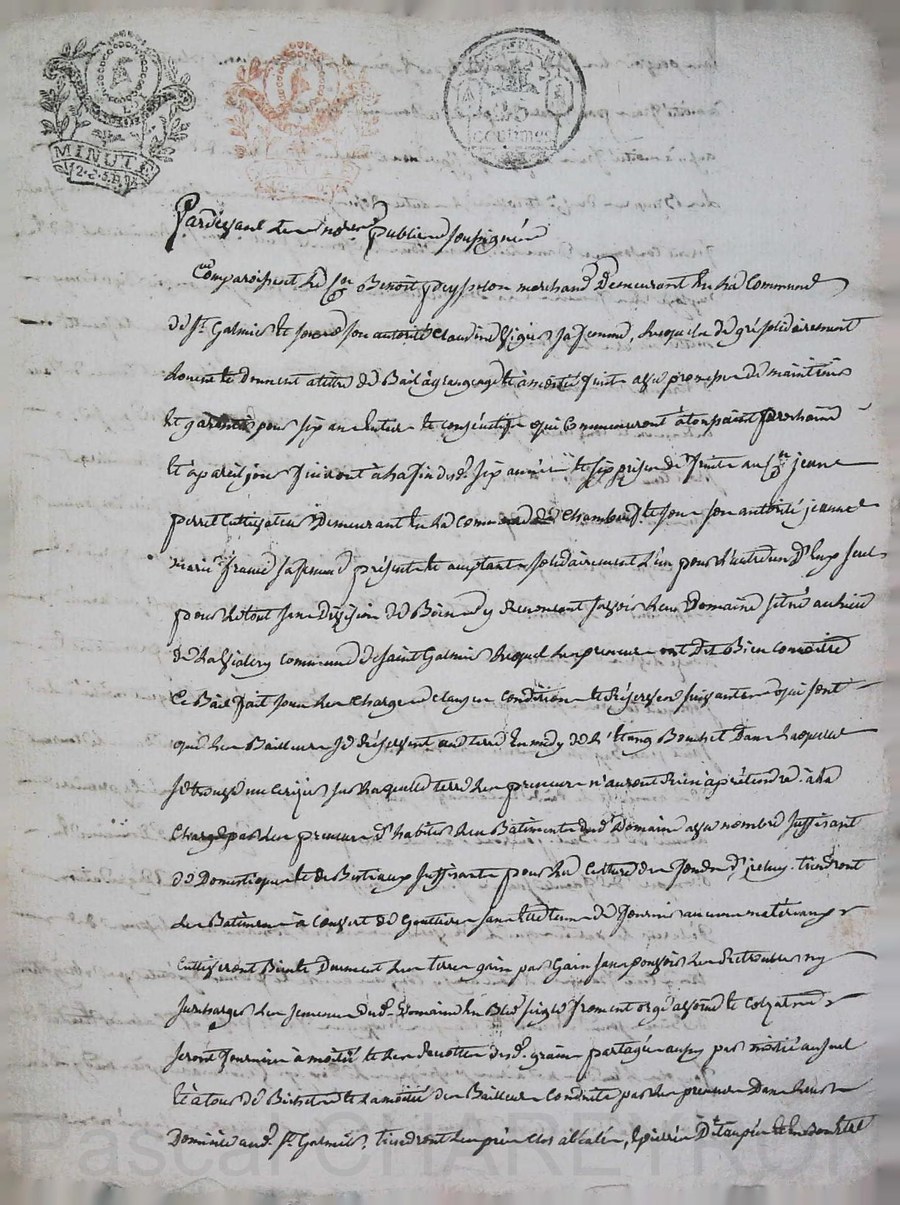 MINUTE
centimes
Pardevant les notres publics soussignés
Comparoissent le sr Benoit peysselon marchand Demeurant en la Commune
de St Galmier et sous son autorité Claudine Vigier sa femme, lesquels de gré solidairement
donnent à titre de Bail à grangeage et à moitié fruit avec promesse de maintenir
et garantir pour six ans entiers et consécutifs qui Commenceront à toussaint prochaine
et à pareil jour finiront à la fin desd. six années et six prises de fruits au sr jeane
perret cultivateur Demeurant en la commune de Chambeuf et sous son autorité jeanne
marie sa femme présents et acceptants solidairement l'un pour l'autre un D'Eux seul
pour le tout sans Division de Bien y renoncent savoir leur Domaine situé au lieu
de la commune de Saint Galmier lequel les preneurs ont dit Bien connoitre
Ce Bail fait sous les Charges clauses conditions et Réserves suivantes qui sont
que les Bailleurs se réservent une terre en midy de l'Etang Bouchet Dans laquelle
se trouve un cerisier sur laquelle terre les preneurs n'auront rien à prétendre. à la
Charge par les preneurs d'habiter les Bâtiments dud. Domaine avec nombre suffisant
de Domestiques et de Bestiaux suffisants pour la Culture des fonds d'iceluy. tiendront
les Bâtiments à Couvert de Gouttières sans être tenus de fournir aucuns materiaux
Cultiveront Bien et Dûment les terres grain par Gain sans pouvoir les retroubler ny
surcharger les semences dud. Domaine en Bled seigle froment orge avoine et colzat
seront fournies à moitié et les recoltes desd. grains partagés aussy par moitié au sol
et la moitié des Bailleurs conduite par les preneurs Dans leur
Domicile aud. St Galmier, tiendront les prés Clos